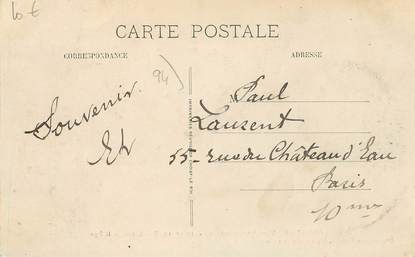 10 €
CARTE POSTALE
CORRESPONDANCE
ADRESSE
94)
Souvenir
Paul
Laurent
55 - rue du Château d'Eau
Paris
10me